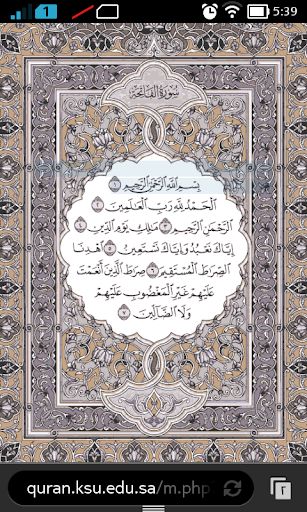 1
5:39
سورة الفاتحة
بسم الله الرحمن الرحيم ١
الحمد لله رب العالمين ٢
الرحمن الرحيم ٣ ملك يوم الدين ٤
إياك نعبد وإياك نستعين ٥ اهدنا
الصرط المستقيم ٦ صرط الذين أنعمت
عليهم غير المغضوب عليهم
ولا الضالين ٧
quran.ksu.edu.sa/m.php